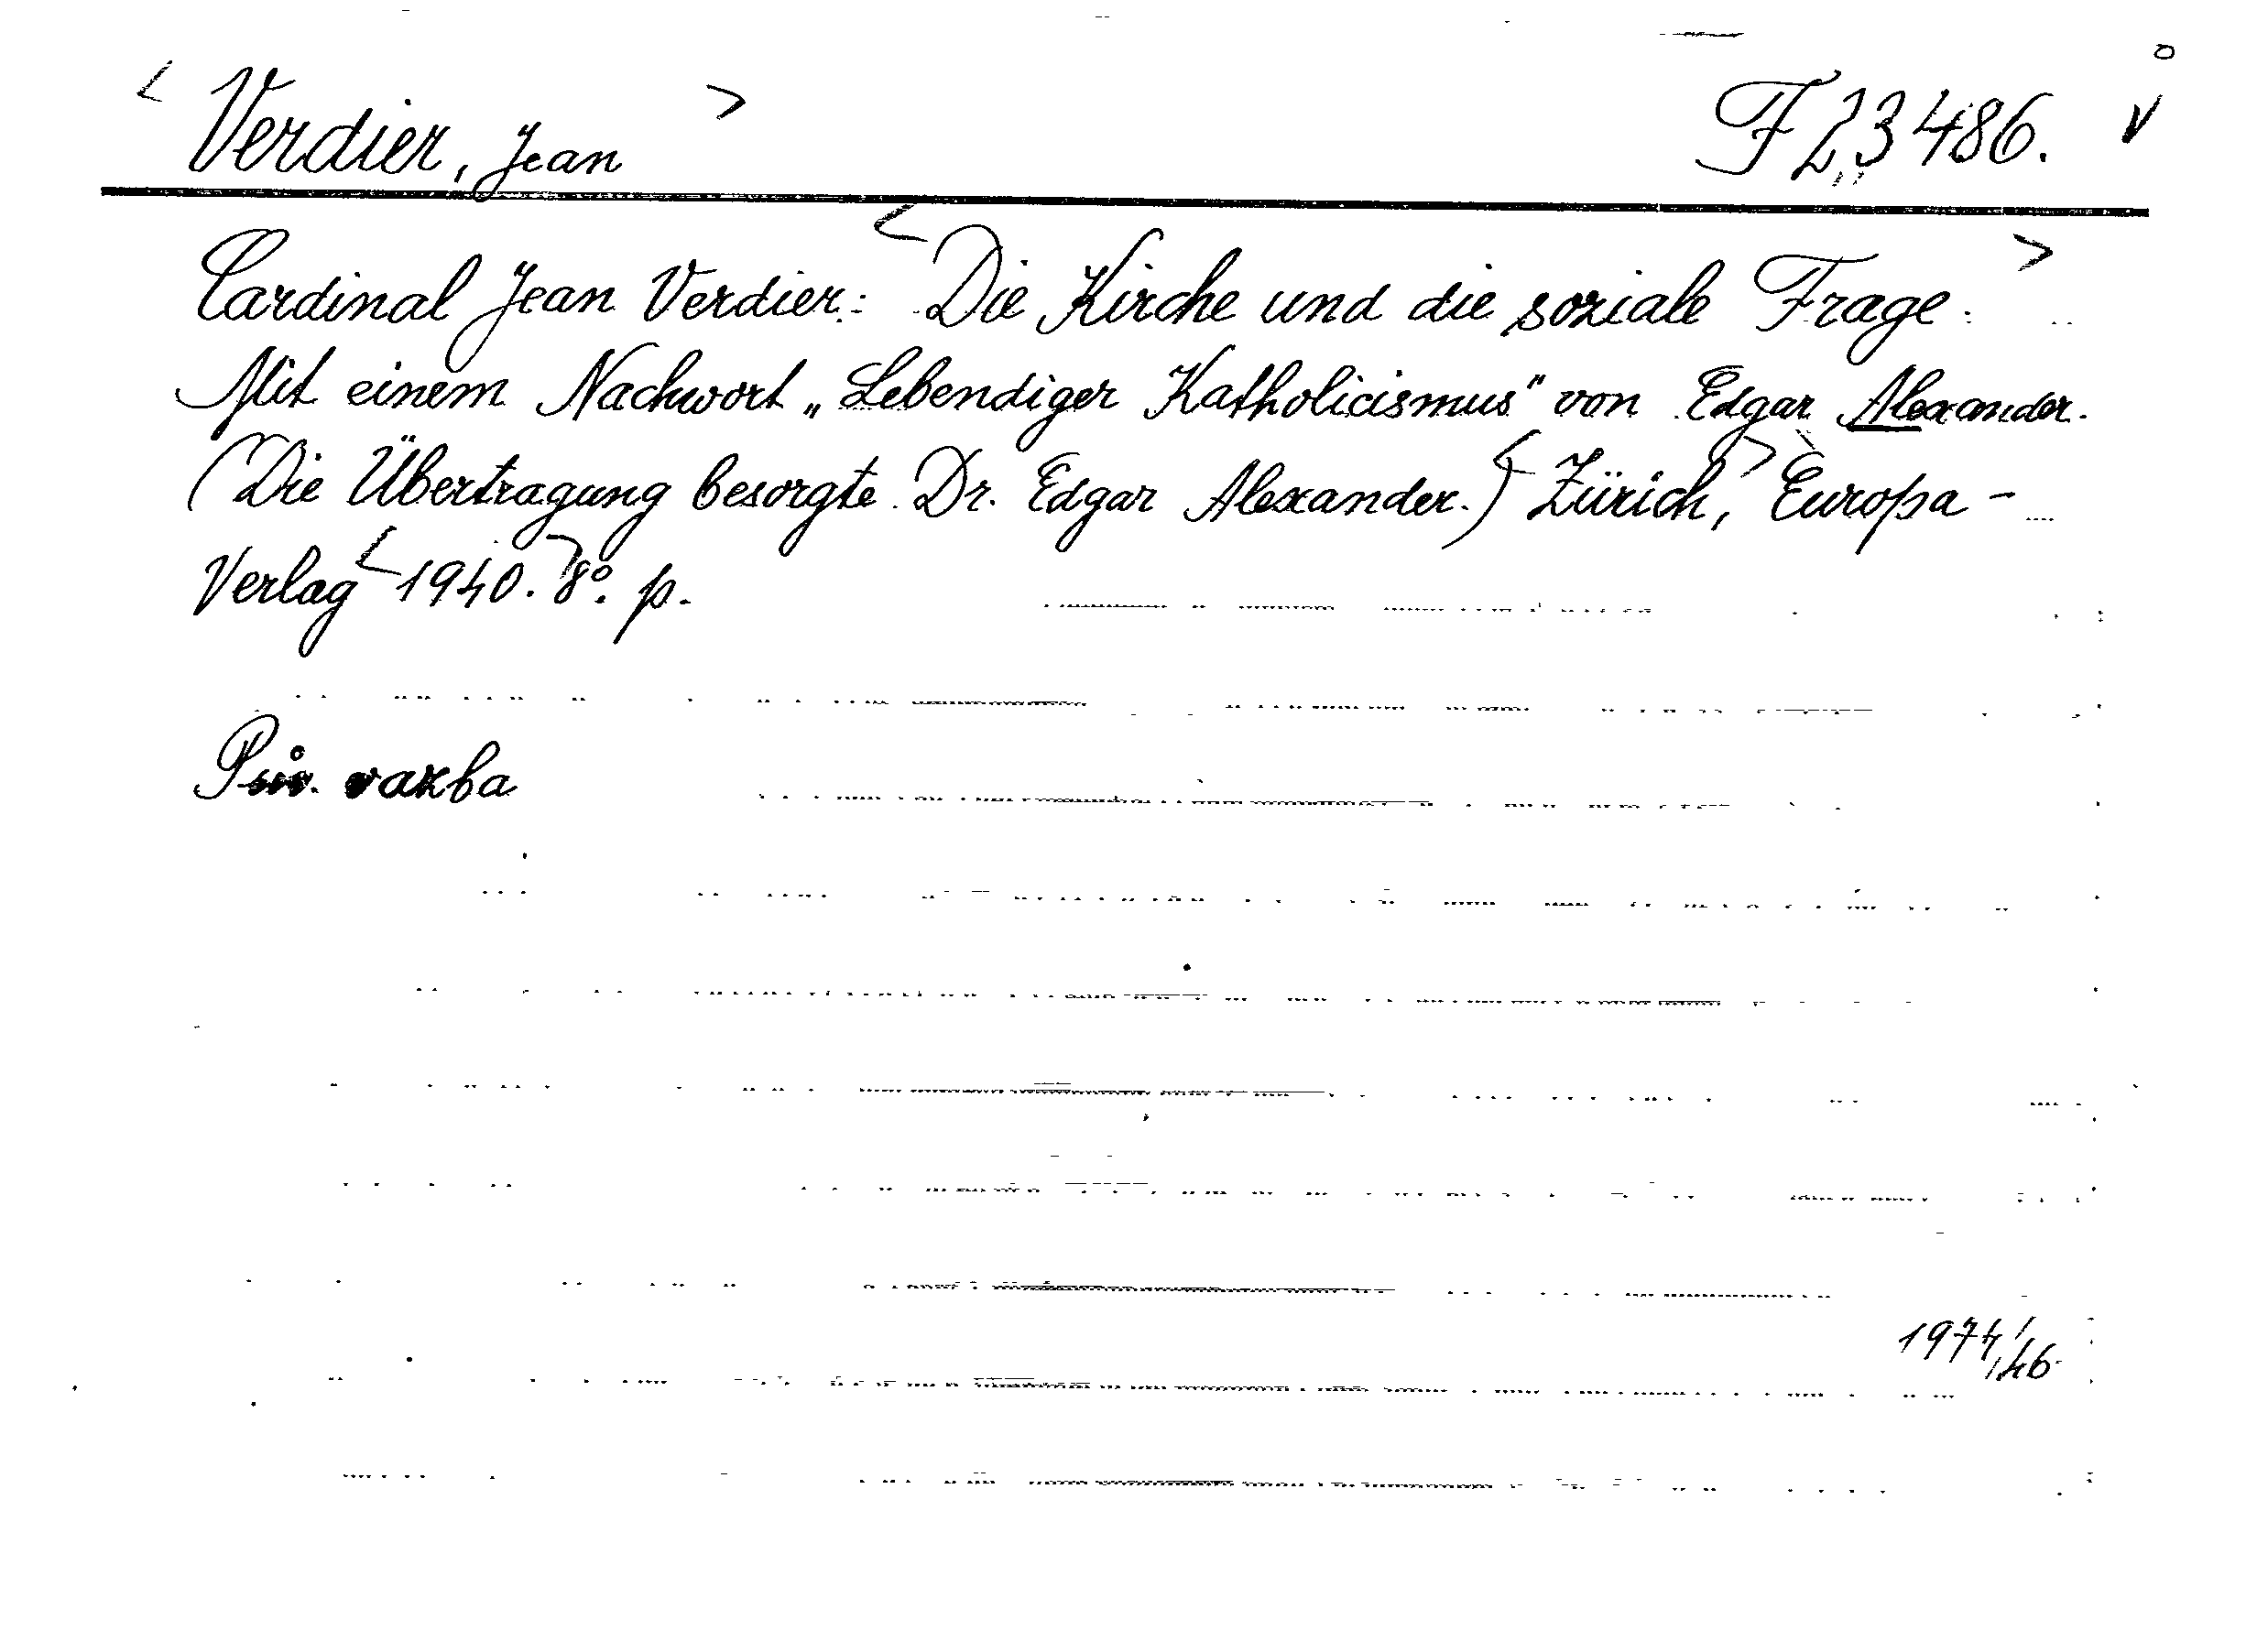 < Verdier, Jean > F 23486. v
Cardinal Jean Verdier: < Die Kirche und die soziale Frage. >
Mit einem Nachwort „Lebendiger Katholicismus" von Edgar Alexander.
(Die Übertragung besorgte Dr. Edgar Alexander.) < Zürich, > Europa-
Verlag < 1940. > 8°. p.
Pův. vazba
1974/46